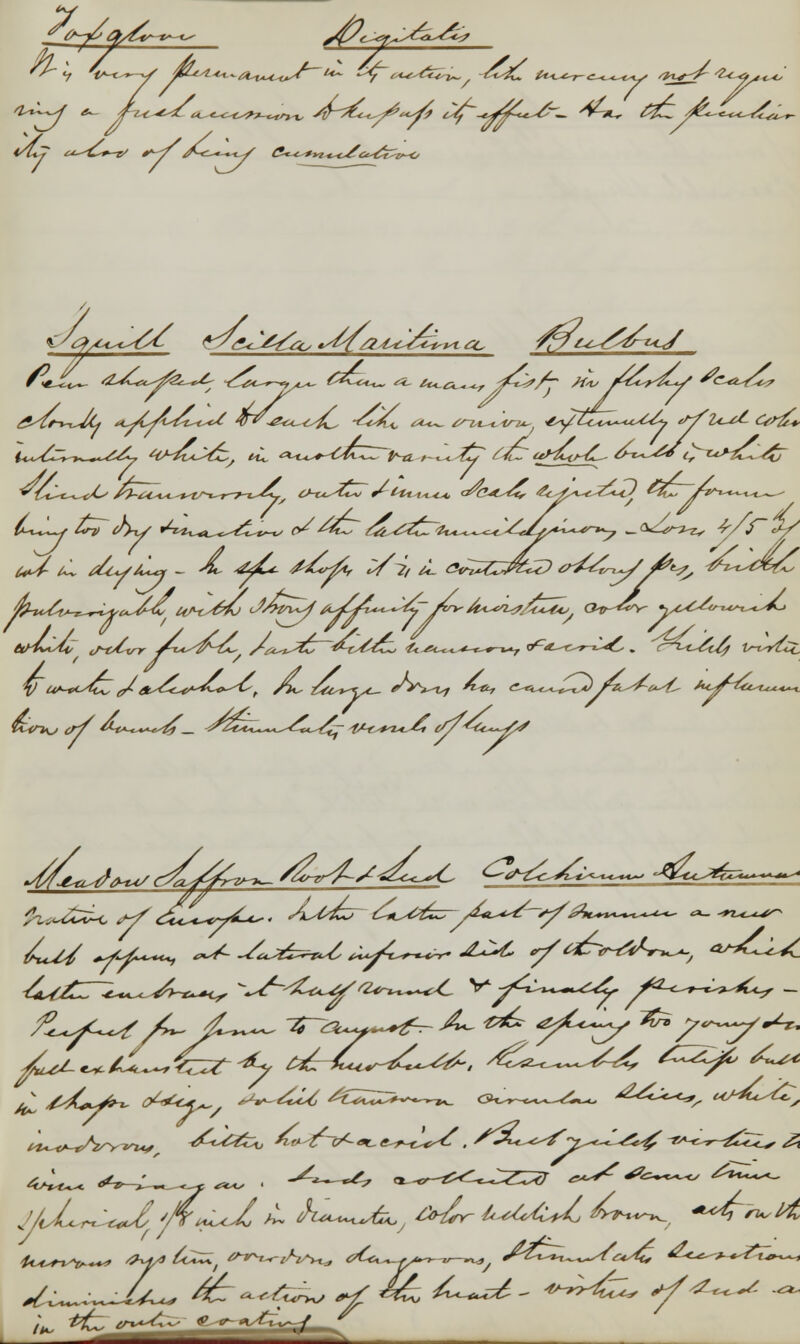 Foxglove Digitalis
It is very permanent in its action, like mercury not requi
ring a fresh accession to keep up its effect - Has the peculiar
ity also of being cumulative
Squill Scilla Maritima Bulbus
Pear shaped, larger than a mans fist, in fleshy scales
closely applied to each like an onion, externally of red color
internally white, in another variety the whole bulb is white
Sliced transversely, outer & inner scales rejected, the former
being too dry & inactive & the latter mucilaginous, - Loses 4/5 of
wt in drying - In the shops it is in contorted oblong pcs, brittle
pulverizable, with strong affinity for moisture, color yellowish
white, odor feeble, taste bitter nauseous, & acrid. Yields virtue
to water & alcohol, In large doses has caused fatal inflamma
tion of bowels - Stimulates vessels of lungs
Meadow Saffron Root & Seed Colchicum Autumna
Native of Europe. In the latter part of summer a new
bulb appears at lateral inferior side of the old one, which
latter embraces it half round & finally perishes -
Perfect from June to August - In the spring too young & in
fall exhausted by the new bulb. Resembles tulip bulb
in shape & size, solid transverse circular slices, white,
inodorous, bitter hot & acrid. Bulb yields virtues to
wine & vinegar. Seeds collected at same time
Spherical, 1/8 inch in diameter, color reddish brown, acts on th
nervous system, overdoses dangerous, Stimulates secretions
diminishes the action of the heart - virtues of seed a
in the outer coating